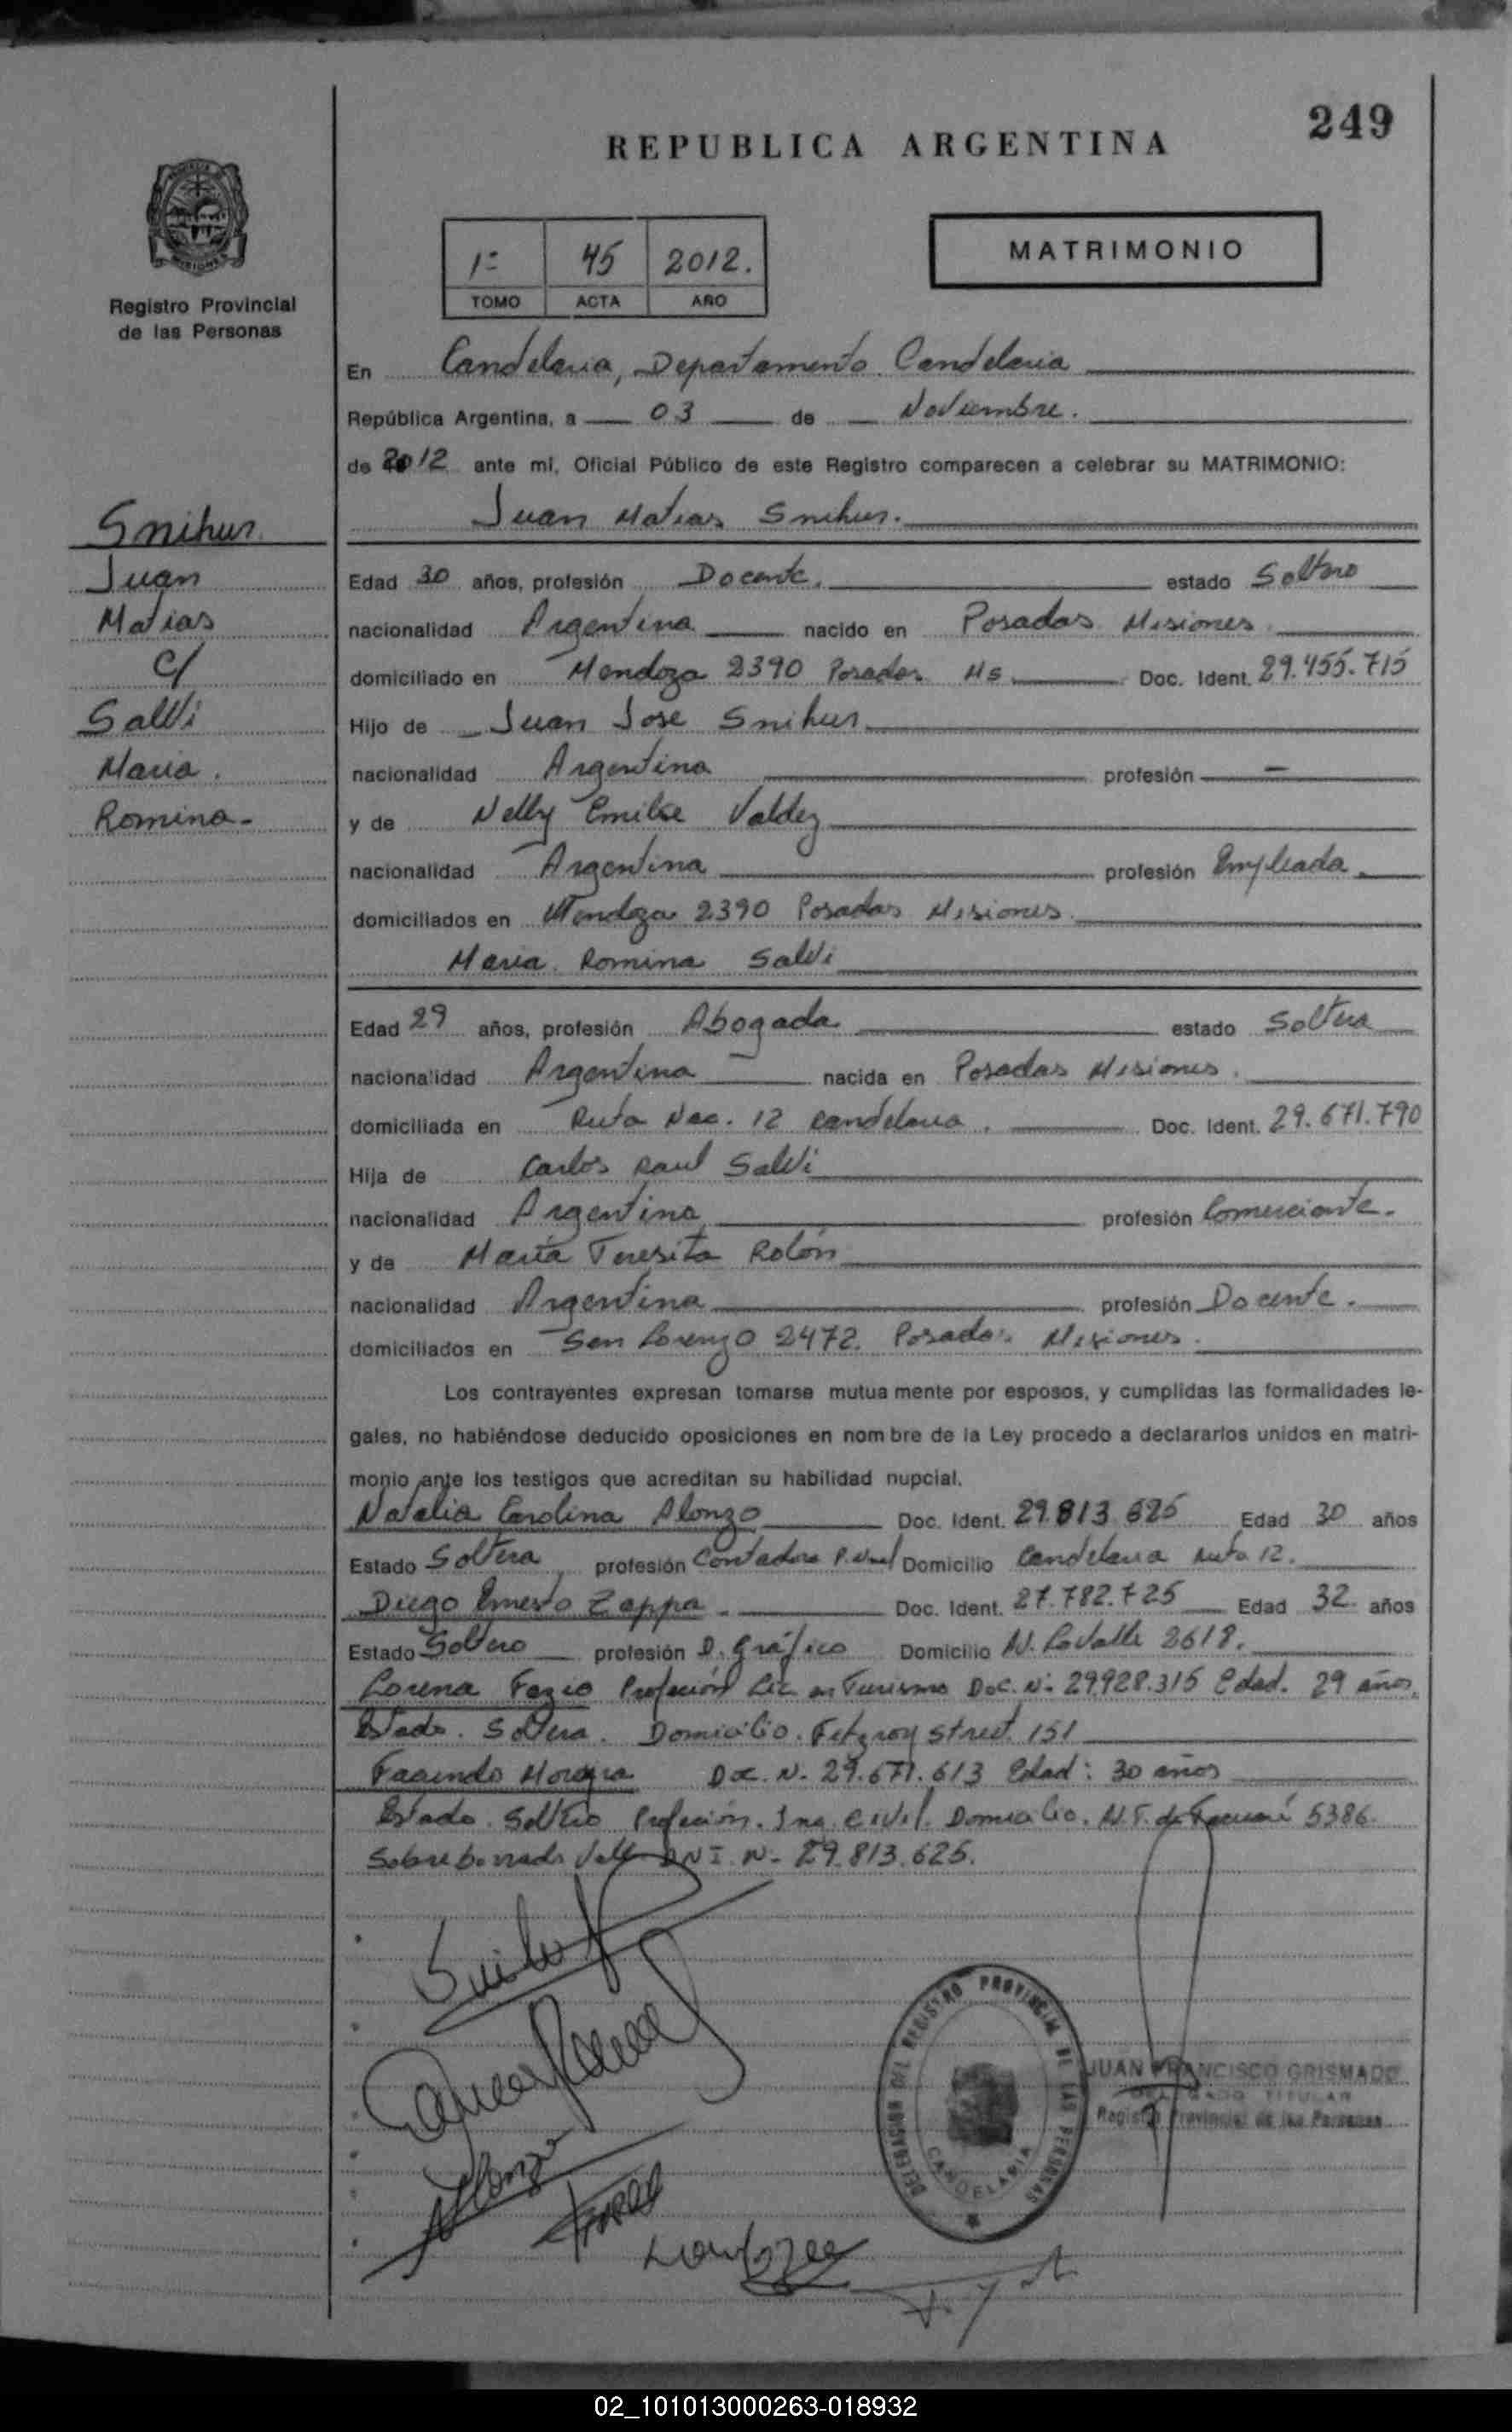 249
REPUBLICA ARGENTINA
MATRIMONIO
1º 45 2012.
TOMO ACTA AÑO
Registro Provincial
de las Personas
En Candelaria, Departamento Candelaria
República Argentina, a 03 de Noviembre.
de 2012 ante mi, Oficial Público de este Registro comparecen a celebrar su MATRIMONIO:
Snihur
Juan
Matias
c/
Salvi
Maria.
Romina-
Juan Matias Snihur.
Edad 30 años, profesión Docente. estado Soltero
nacionalidad Argentina nacido en Posadas Misiones
domiciliado en Mendoza 2390 Posadas Ms Doc. Ident. 29.455.715
Hijo de Juan Jose Snihur
nacionalidad Argentina profesión -
y de Nelly Emilse Valdez
nacionalidad Argentina profesión Empleada
domiciliados en Mendoza 2390 Posadas Misiones
Maria Romina Salvi
Edad 29 años, profesión Abogada estado Soltera
nacionalidad Argentina nacida en Posadas Misiones.
domiciliada en Ruta Nac. 12 Candelaria. Doc. Ident. 29.671.790
Hija de Carlos Raul Salvi
nacionalidad Argentina profesión Comerciante.
y de María Teresita Rolón
nacionalidad Argentina profesión Docente.
domiciliados en San Lorenzo 2472. Posadas Misiones.
Los contrayentes expresan tomarse mutua mente por esposos, y cumplidas las formalidades le-
gales, no habiéndose deducido oposiciones en nom bre de la Ley procedo a declararlos unidos en matri-
monio ante los testigos que acreditan su habilidad nupcial.
Natalia Carolina Alonzo Doc. Ident. 29.813.625 Edad 30 años
Estado Soltera profesión Contadora Domicilio Candelaria Ruta 12.
Diego Ernesto Zappa Doc. Ident. 27.782.725 Edad 32 años
Estado Soltero profesión D. Gráfico Domicilio Av. Lavalle 2618.
Lorena Fazio Profesión Lic en Turismo Doc. Nº 29.928.315 Edad. 29 años.
Estado. Soltera. Domicilio. Fitzroy Street. 151
Facundo Doc. N. 29.671.613 Edad: 30 años
Estado. Soltero Profesión. Ing. Civil. Domicilio. 5386.
Sobreborrado Vale DNI. N- 29.813.625.
DELEGACION DEL REGISTRO PROVINCIAL DE LAS PERSONAS
CANDELARIA
JUAN FRANCISCO GRISMADO
DELEGADO TITULAR
Registro Provincial de las Personas
02_101013000263-018932